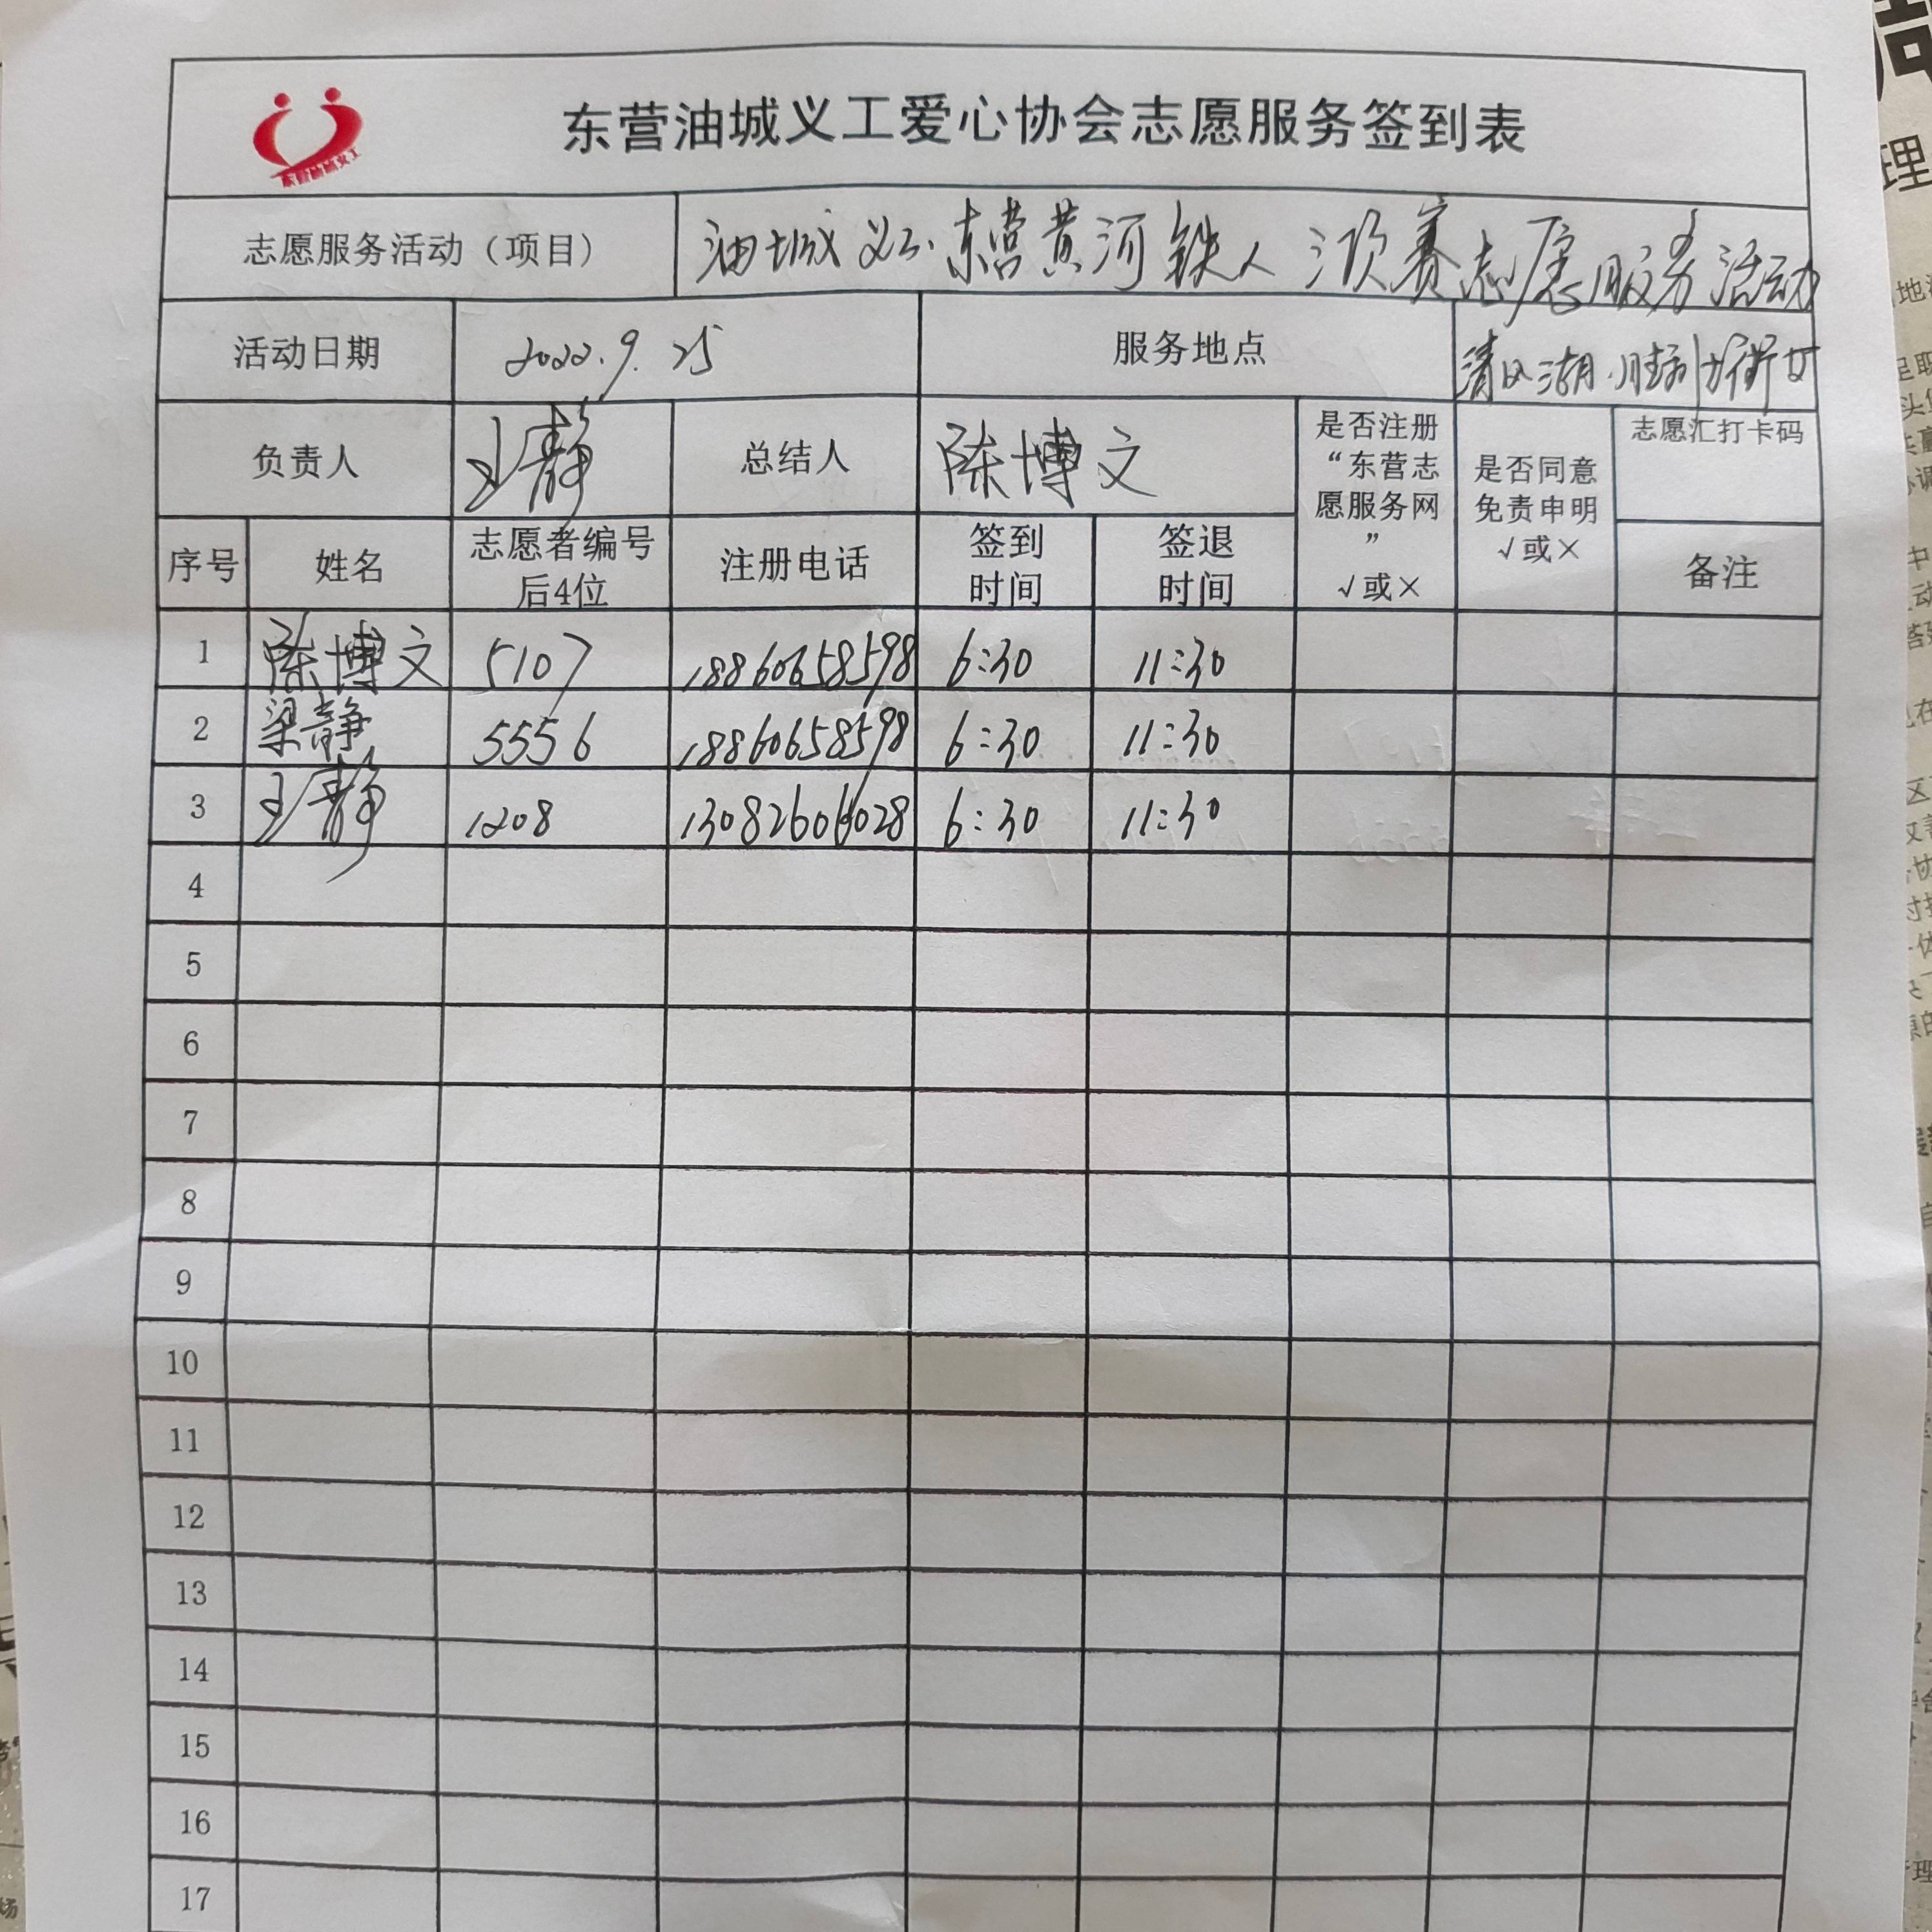 东营油城义工
东营油城义工爱心协会志愿服务签到表
志愿服务活动（项目） 油城义工·东营黄河铁人三项赛志愿服务活动
活动日期 2022.9.25 服务地点 清风湖·胜利
负责人 王静 总结人 陈博文 是否注册“东营志愿服务网” √或× 是否同意免责申明 √或× 志愿汇打卡码
序号 姓名 志愿者编号后4位 注册电话 签到时间 签退时间 备注
1 陈博文 5107 18860658598 6:30 11:30
2 梁静 5556 18860658598 6:30 11:30
3 王静 1208 13082606028 6:30 11:30
4
5
6
7
8
9
10
11
12
13
14
15
16
17